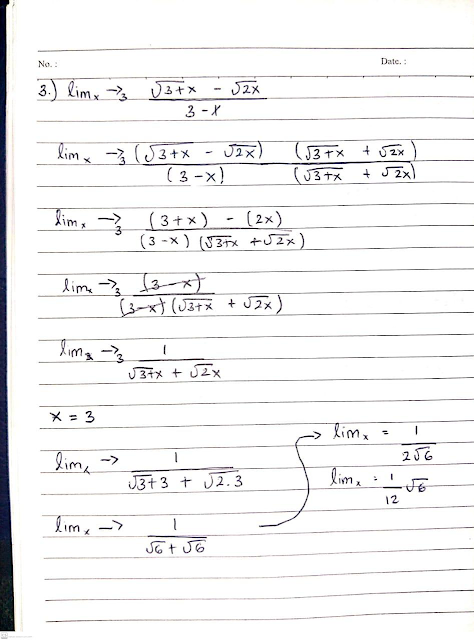 No. : Date. :
3.) lim x → 3 √3+x - √2x / 3 - x
lim x → 3 (√3+x - √2x) (√3+x + √2x) / (3 - x) (√3+x + √2x)
lim x → 3 (3+x) - (2x) / (3-x) (√3+x + √2x)
lim x → 3 (3-x) / (3-x) (√3+x + √2x)
lim x → 3 1 / √3+x + √2x
x = 3
lim x → 1 / √3+3 + √2.3
lim x → 1 / √6 + √6
→ lim x = 1 / 2√6
lim x = 1/12 √6